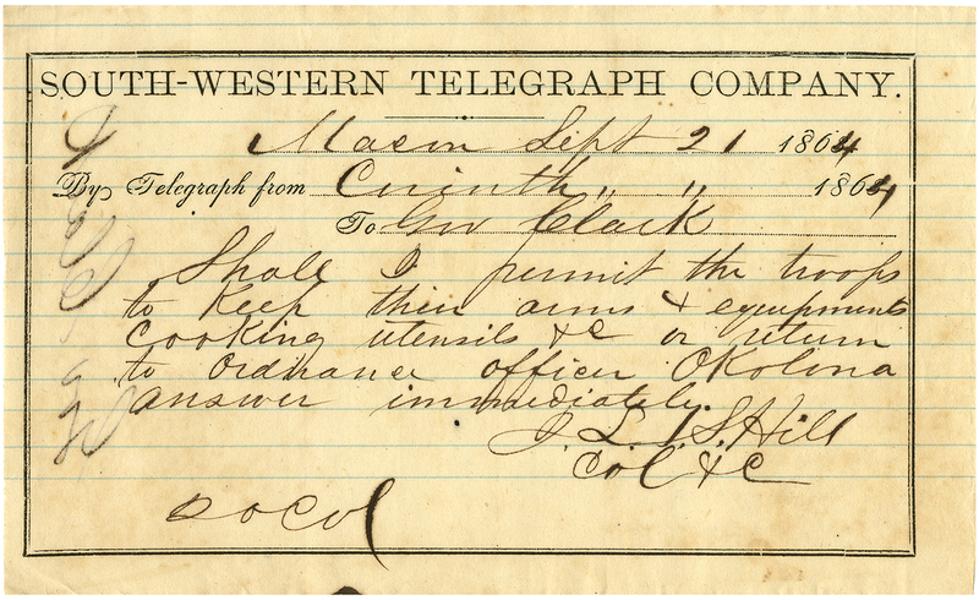 SOUTH-WESTERN TELEGRAPH COMPANY.
Macon Sept 21 1864
By Telegraph from Corinth " " 1864
To Gov Clark
Shall I permit the troops
to keep their arms & equipments
cooking utensils &c or return
to ordnance officer Okolona
answer immediately.
L. S. Hill
Col &c